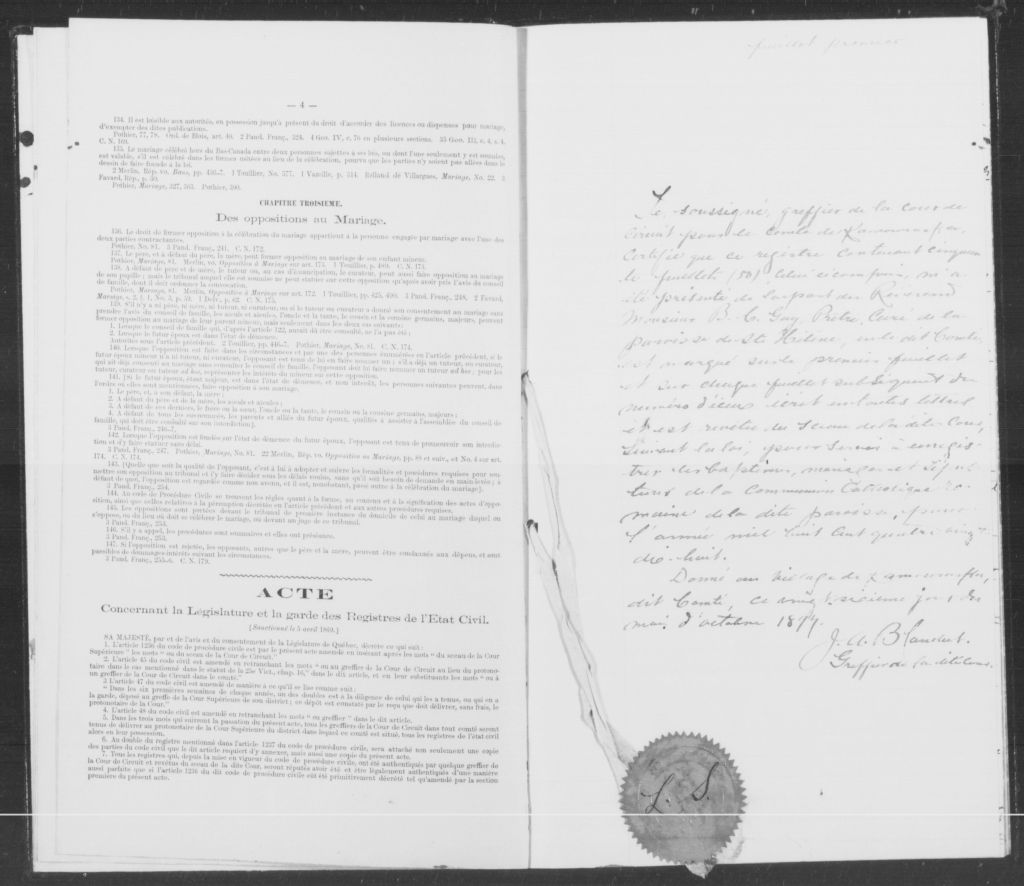 — 4 —
134. Il est loisible aux autorités, en possession jusqu'à présent du droit d'accorder des licences ou dispenses pour mariage,
d'exempter des dites publications.
Pothier, 77, 78. Ord. de Blois, art. 40. 2 Pand. Franç., 324. 4 Geo. IV, c. 76 en plusieurs sections. 35 Geo. III, c. 4, s. 4.
C. N. 169.
135. Le mariage célébré hors du Bas-Canada entre deux personnes sujettes à ses lois, ou dont l'une seulement y est soumise,
est valable, s'il est célébré dans les formes usitées au lieu de la célébration, pourvu que les parties n'y soient pas allées dans le
dessein de faire fraude à la loi.
2 Merlin, Rép. vo. Bans, pp. 436-7. 1 Toullier, No. 577. 1 Vazeille, p. 314. Rolland de Villargues, Mariage, No. 22. 3
Favard, Rép., p. 59.
Pothier, Mariage, 327, 363. Pothier, 390.
CHAPITRE TROISIEME.
Des oppositions au Mariage.
136. Le droit de former opposition à la célébration du mariage appartient à la personne engagée par mariage avec l'une des
deux parties contractantes.
Pothier, No. 81. 3 Pand. Franç., 241. C. N. 172.
137. Le père, et à défaut du père, la mère, peut former opposition au mariage de son enfant mineur.
Pothier, Mariage, 81. Merlin, vo. Opposition à Mariage sur art. 173. 1 Toullier, p. 489. C. N. 173.
138. A défaut de père et de mère, le tuteur ou, au cas d'émancipation, le curateur, peut aussi faire opposition au mariage
de son pupille; mais le tribunal auquel elle est soumise ne peut statuer sur cette opposition qu'après avoir pris l'avis du conseil
de famille, dont il doit ordonner la convocation.
Pothier, Mariage, 81. Merlin, Opposition à Mariage sur art. 172. 1 Toullier, pp. 425, 490. 3 Pand. Franç., 248. 2 Favard,
Mariage, s. 2, § 1, No. 3, p. 59. 1 Delv., p. 62. C. N. 175.
139. S'il n'y a ni père, ni mère, ni tuteur, ni curateur, ou si le tuteur ou curateur a donné son consentement au mariage sans
prendre l'avis du conseil de famille, les aïeuls et aïeules, l'oncle et la tante, le cousin et la cousine germains, majeurs, peuvent
former opposition au mariage de leur parent mineur, mais seulement dans les deux cas suivants:
1. Lorsque le conseil de famille qui, d'après l'article 122, aurait dû être consulté, ne l'a pas été;
2. Lorsque le futur époux est dans l'état de démence.
Autorités sous l'article précédent. 2 Toullier, pp. 446-7. Pothier, Mariage, No. 81. C. N. 174.
140. Lorsque l'opposition est faite dans les circonstances et par une des personnes énumérées en l'article précédent, si le
futur époux mineur n'a ni tuteur, ni curateur, l'opposant est tenu de lui en faire nommer un; s'il a déjà un tuteur, ou curateur,
qui ait déjà consenti au mariage sans consulter le conseil de famille, l'opposant doit lui faire nommer un tuteur ad hoc; pour les
tuteur, curateur ou tuteur ad hoc, représenter les intérêts du mineur sur cette opposition.
141. [Si le futur époux, étant majeur, est dans l'état de démence, et non interdit, les personnes suivantes peuvent, dans
l'ordre où elles sont mentionnées, faire opposition à son mariage.
1. Le père, et, à son défaut, la mère;
2. A défaut du père et de la mère, les aïeuls et aïeules;
3. A défaut de ces derniers, le frère ou la sœur, l'oncle ou la tante, le cousin ou la cousine germains, majeurs;
4. A défaut de tous les susnommés, les parents et alliés du futur époux, qualifiés à assister à l'assemblée du conseil de
famille, qui doit être consulté sur son interdiction].
3 Pand. Franç., 246-7.
142. Lorsque l'opposition est fondée sur l'état de démence du futur époux, l'opposant est tenu de promouvoir son interdic-
tion et d'y faire statuer sans délai.
3 Pand. Franç., 247. Pothier, Mariage, No. 81. 22 Merlin, Rép. vo. Opposition au Mariage, pp. 88 et suiv., et No. 4 sur art.
174. C. N. 174.
143. [Quelle que soit la qualité de l'opposant, c'est à lui à adopter et suivre les formalités et procédures requises pour sou-
mettre son opposition au tribunal et l'y faire décider sous les délais voulus, sans qu'il soit besoin de demande en main-levée; à
défaut de quoi, l'opposition est regardée comme non avenu, et il est, nonobstant, passé outre à la célébration du mariage].
3 Pand. Franç., 254.
144. Au code de Procédure Civile se trouvent les règles quant à la forme, au contenu et à la signification des actes d'oppo-
sition, ainsi que celles relatives à la péremption décrétée en l'article précédent et aux autres procédures requises.
145. Les oppositions sont portées devant le tribunal de première instance du domicile de celui au mariage duquel on
s'oppose, ou du lieu où doit se célébrer le mariage, ou devant un juge de ce tribunal.
3 Pand. Franç., 253.
146. S'il y a appel, les procédures sont sommaires et elles ont préséance.
3 Pand. Franç., 253.
147. Si l'opposition est rejetée, les opposants, autres que le père et la mère, peuvent être condamnés aux dépens, et sont
passibles de dommages-intérêts suivant les circonstances.
3 Pand. Franç., 255-6. C. N. 179.
ACTE
Concernant la Législature et la garde des Registres de l'Etat Civil.
[Sanctionné le 5 avril 1869.]
SA MAJESTÉ, par et de l'avis et du consentement de la Législature de Québec, décrète ce qui suit:
1. L'article 1236 du code de procédure civile est par le présent acte amendé en insérant après les mots "du sceau de la Cour
Supérieure" les mots "ou du sceau de la Cour de Circuit."
2. L'article 45 du code civil est amendé en retranchant les mots "ou au greffier de la Cour de Circuit au lieu du protono-
taire dans le cas mentionné dans le statut de la 25e Vict., chap. 16," dans le dit article, et en leur substituants les mots "ou à
un greffier de la Cour de Circuit dans le comté."
3 L'article 47 du code civil est amendé de manière à ce qu'il se lise comme suit:
" Dans les six premières semaines de chaque année, un des doubles est à la diligence de celui qui les a tenus, ou qui en a
la garde, déposé au greffe de la Cour Supérieure de son district; ce dépôt est constaté par le reçu que doit délivrer, sans frais, le
protonotaire de la Cour."
4. L'article 48 du code civil est amendé en retranchant les mots " ou greffier " dans le dit article.
5. Dans les trois mois qui suivront la passation du présent acte, tous les greffiers de la Cour de Circuit dans tout comté seront
tenus de délivrer au protonotaire de la Cour Supérieure du district dans lequel ce comté est situé, tous les registres de l'état civil
alors en leur possession.
6. Au double du registre mentionné dans l'article 1237 du code de procédure civile, sera attaché non seulement une copie
des parties du code civil que le dit article requiert d'y annexer, mais aussi une copie du présent acte.
7. Tous les registres qui, depuis la mise en vigueur du code de procédure civile, ont été authentiqués par quelque greffier de
la Cour de Circuit et revêtus du sceau de la dite Cour, seront réputés avoir été et être légalement authentiqués d'une manière
aussi parfaite que si l'article 1236 du dit code de procédure civile eût été primitivement décrété tel qu'amendé par la section
première du présent acte.
feuillet premier
Je, soussigné, greffier de la Cour de
Circuit pour le Comté de Kamouraska,
Certifie que ce registre contenant cinquan
te feuillets (50), celui ci compris, m'a
été présenté de la part du Révérend
Monsieur B. C. Guy, Prêtre, Curé de la
paroisse de Ste Hélène, en le dit Comté,
est marqué sur le premier feuillet
et sur chaque feuillet subséquent du
numéro d'iceux écrit en toutes lettres
et est revêtu du Sceau de la dite Cour,
Suivant la loi, pour servir à enregis
trer les baptêmes, mariages et sépul
tures de la Communion Catholique Ro
maine de la dite paroisse, pour
l'année mil huit cent quatre vingt
dix-huit.
Donné au Village de Kamouraska,
dit Comté, ce vingt sixième jour du
mois d'octobre 1897.
J. A. Blanchet.
Greffier de la dite Cour.
L. S.